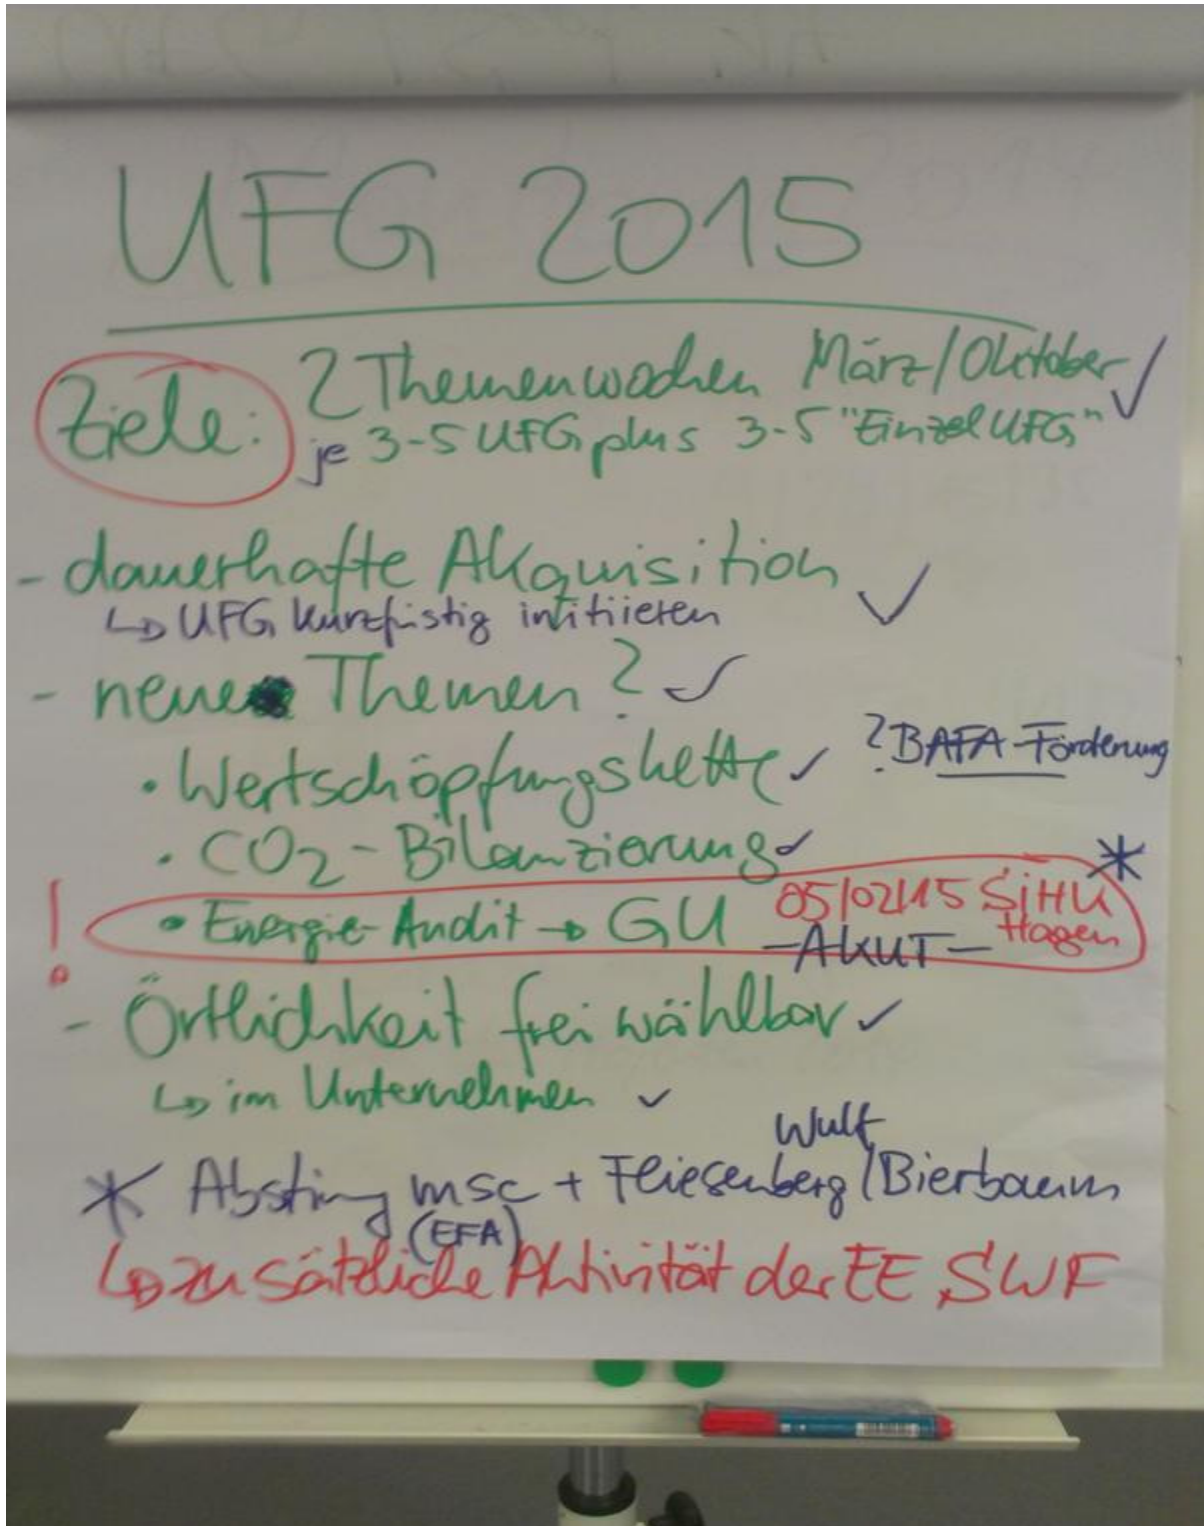 UFG 2015
Ziele: 2 Themenwochen März/Oktober ✓
je 3-5 UFG plus 3-5 "Einzel UFG"
- dauerhafte Akquisition ✓
↳ UFG kurzfristig initiieren
- neue Themen? ✓
• Wertschöpfungskette ✓ ? BAFA-Förderung
• CO2-Bilanzierung ✓ *
! • Energie-Audit → GU 05/02/15 SIHU
-AKUT- Hagen
- Örtlichkeit frei wählbar ✓
↳ im Unternehmen ✓
Wulf
* Abstimg msc + Fliesenberg/Bierbaum
(EFA)
↳ zusätzliche Aktivität der EE SWF